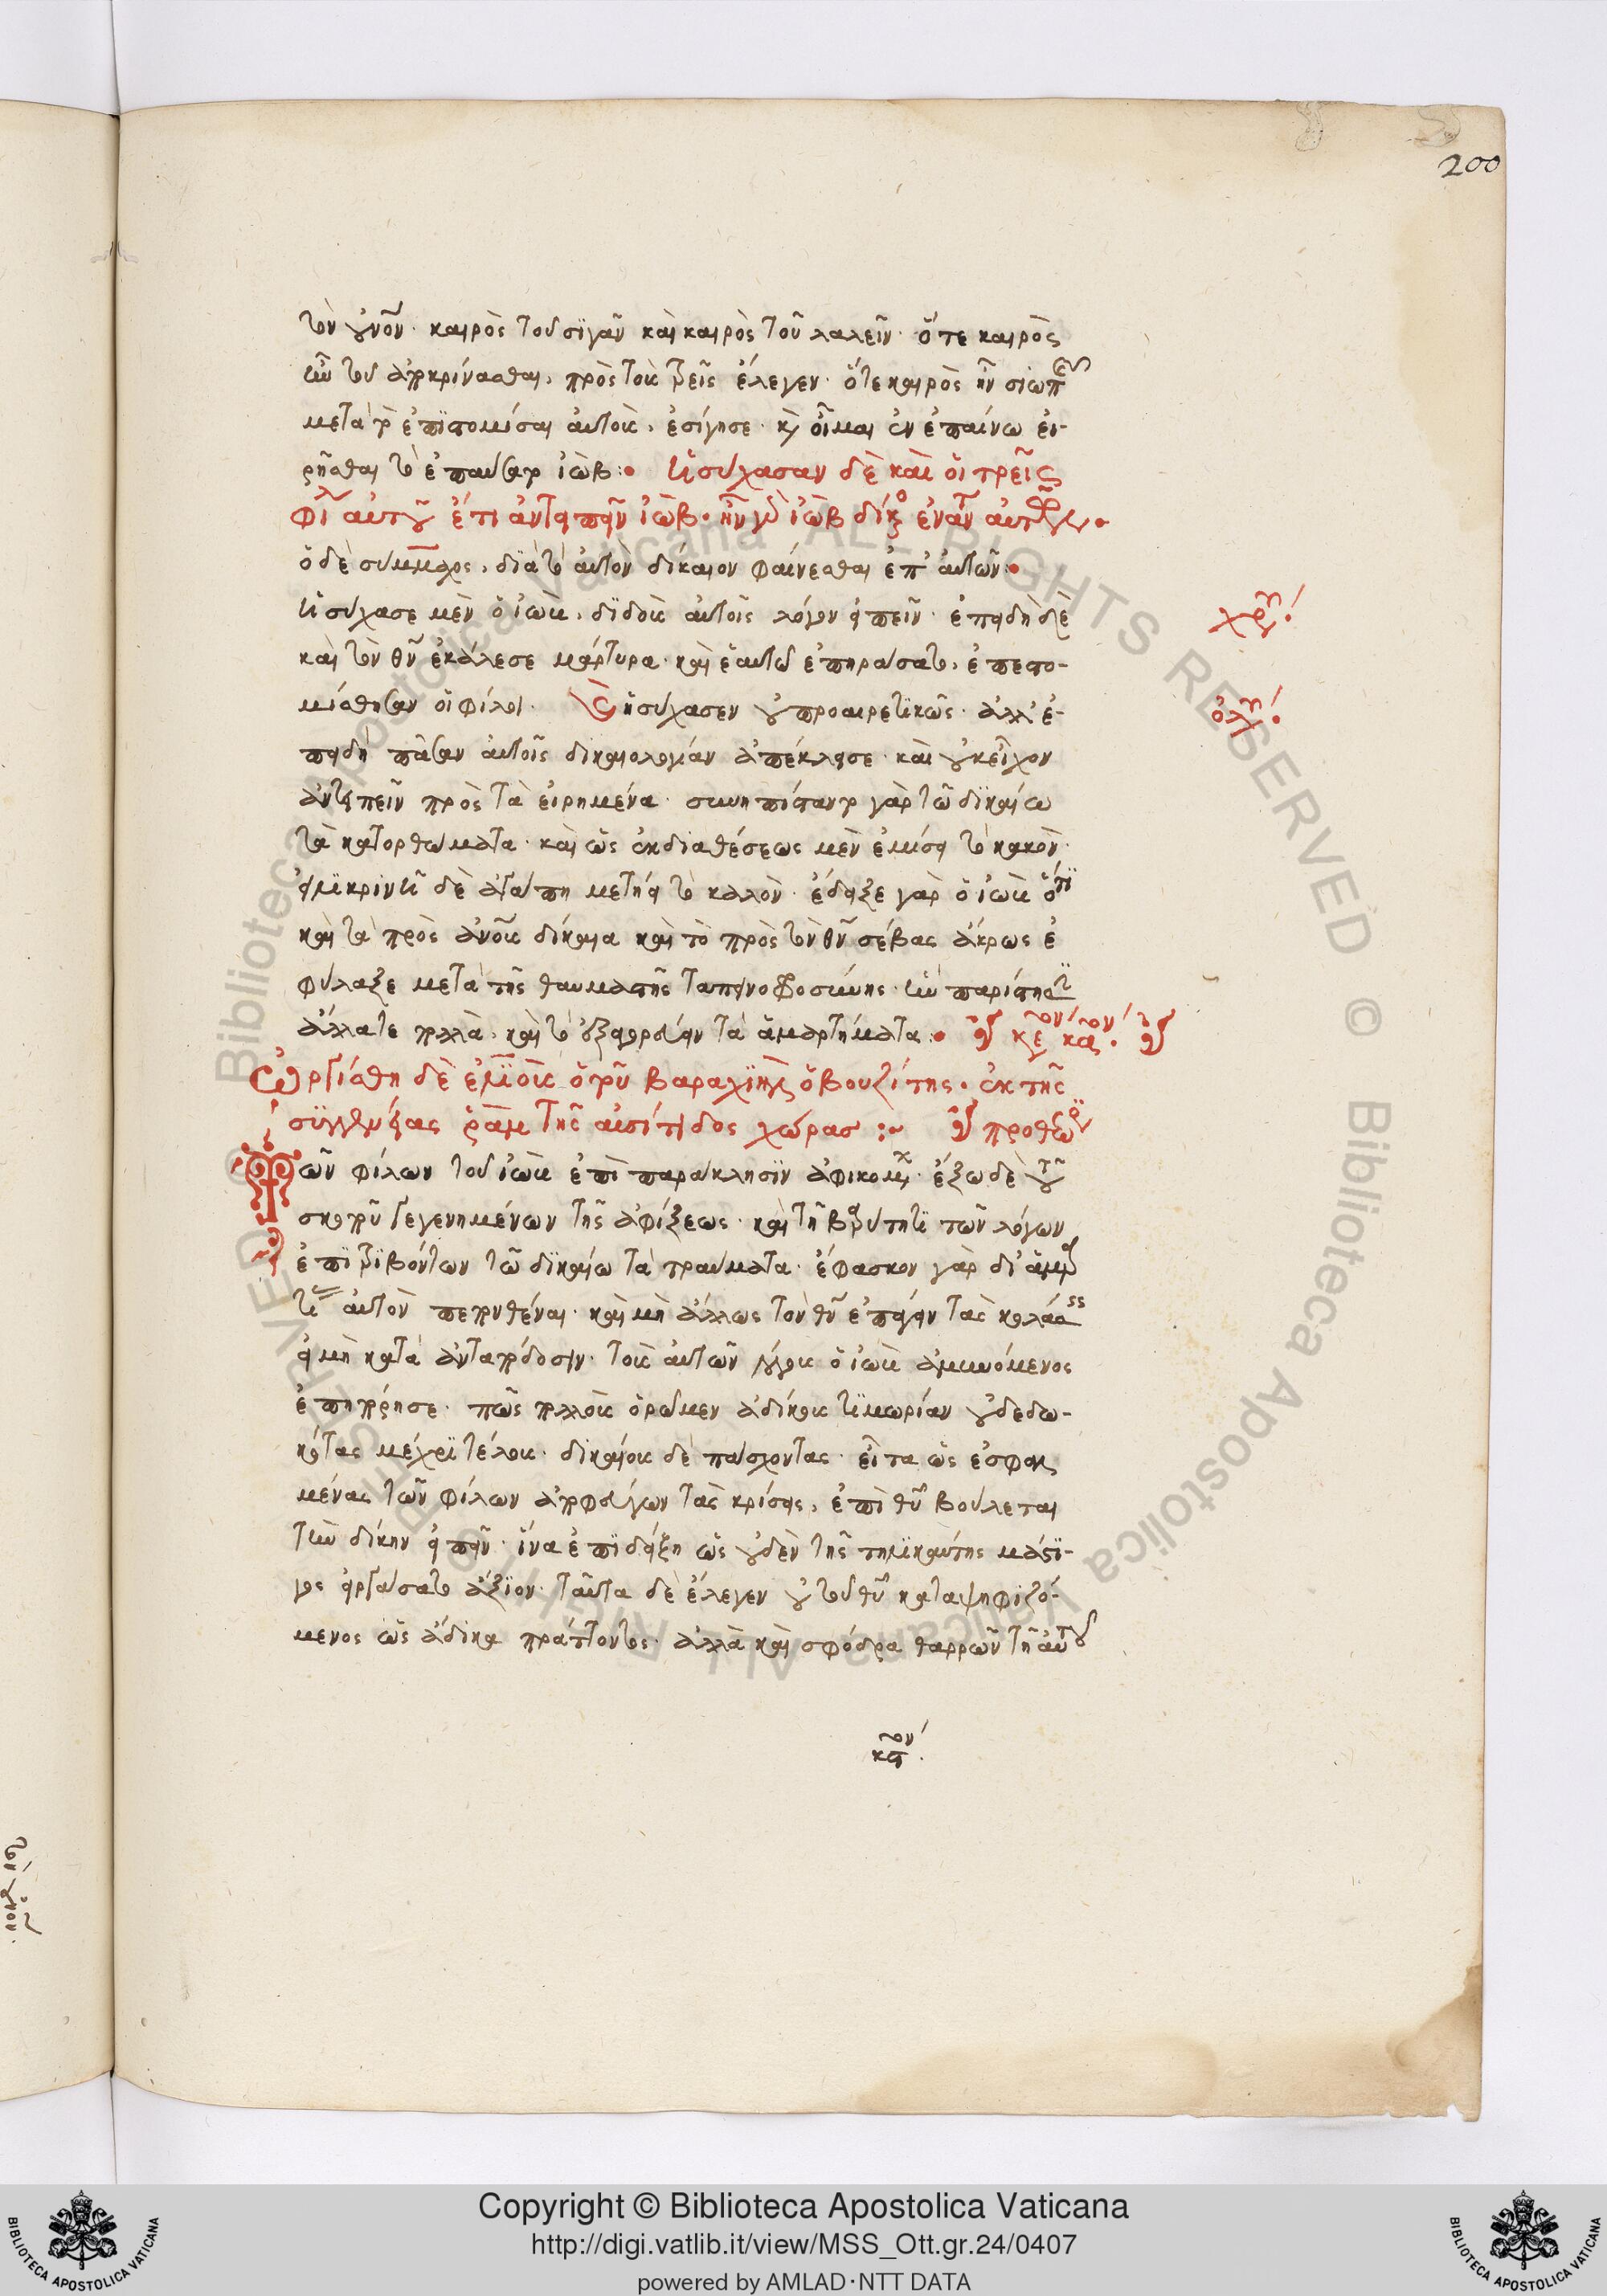 200
τὸν οὐνον· καιρὸς τοῦ σιγᾶν καὶ καιρὸς τοῦ λαλεῖν· ὅτε καιρὸς
ἦν τοῦ ἀποκρίνασθαι, πρὸς τοὺς τρεῖς ἔλεγεν· ὅτε καιρὸς ἦν σιωπῆς
μετὰ τὸ ἐπιστομίσαι αὐτοὺς, ἐσίγησε· καὶ οἶμαι ἐν ἐπαίνω εἰ-
ρῆσθαι τὸ ἐπαύσατο ἰὼβ: ἡσύχασαν δὲ καὶ οἱ τρεῖς
φίλοι αὐτοῦ ἔτι ἀντειπεῖν ἰὼβ· ἦν γὰρ ἰὼβ δίκαιος ἐναντίον αὐτῶν·
ὁ δὲ σύμμαχος, διὰ τὸ αὐτὸν δίκαιον φαίνεσθαι ἐπ' αὐτῶν·
ἡσύχασε μὲν ὁ ἰὼβ, διδοὺς αὐτοῖς λόγον εἰπεῖν· ἐπειδὴ δὲ
χρυ
καὶ τὸν θν ἐκάλεσε μάρτυρα· καὶ ἑαυτῶ ἐπηράσατο, ἐπεστο-
μίσθησαν οἱ φίλοι. ἡσύχασεν οὐ προαιρετικῶς· ἀλλ' ἐ-
ολυ
πειδὴ πᾶσαν αὐτοῖς δικαιολογίαν ἀπέκλεισε· καὶ οὐκ εἶχον
ἀντειπεῖν πρὸς τὰ εἰρημένα· γὰρ τῶ δικαίω
τὰ κατορθώματα· καὶ ὡς ἐκ διαθέσεως μὲν ἐμίσει τὸ κακὸν·
εἰλικρινεῖ δὲ ἀγάπη μετήει τὸ καλόν· ἔδειξε γὰρ ὁ ἰὼβ ὅτι
καὶ τὰ πρὸς ἀνους δίκαια καὶ τὸ πρὸς τὸν θν σέβας ἄκρως ἐ
φύλαξε μετὰ τῆς θαυμαστῆς ταπεινοφροσύνης· ἣν παρίστησι
ἄλλα τε πολλὰ, καὶ τὸ ἐξαγορεύειν τὰ ἁμαρτήματα·
ὠργίσθη δὲ ἐλιοὺς ὁ τοῦ βαραχιὴλ ὁ βουζίτης· ἐκ τῆς
συγγενείας ῥὰμ τῆς αὐσίτιδος χώρας :~ προθεωρ
Τῶν φίλων τοῦ ἰὼβ ἐπὶ παράκλησιν ἀφικομένων· ἔξω δὲ τοῦ
σκοποῦ γεγενημένων τῆς ἀφίξεως· καὶ τῆ βαρύτητι τῶν λόγων
ἐπιτριβόντων τῶ δικαίω τὰ τραύματα· ἔφασκον γὰρ δι' ἁμαρ
τίας αὐτὸν πεπονθέναι· καὶ μὴ ἄλλως τὸν θν ἐπάγειν τὰς κολάσεις
εἰ μὴ κατὰ ἀνταπόδοσιν· τοὺς αὐτῶν λόγους ὁ ἰὼβ ἀμυνόμενος
ἐπηπόρησε· πῶς πολλοὺς ὁρῶμεν ἀδίκους τιμωρίαν οὐ δεδω-
κότας μέχρι τέλους· δικαίους δὲ πάσχοντας· εἶτα ὡς ἐσφαλ
μένας τῶν φίλων ἀποφαίνων τὰς κρίσεις, ἐπὶ θυ βούλεται
τὴν δίκην εἰπεῖν· ἵνα ἐπιδείξη ὡς οὐδὲν τῆς τηλικαύτης μάστι-
γος εἰργάσατο ἄξιον· ταῦτα δὲ ἔλεγεν οὐ τοῦ θυ καταψηφιζό-
μενος ὡς ἄδικα πράττοντος· ἀλλὰ καὶ σφόδρα θαρρῶν τῆ αὐτοῦ
Copyright © Biblioteca Apostolica Vaticana
http://digi.vatlib.it/view/MSS_Ott.gr.24/0407
powered by AMLAD·NTT DATA